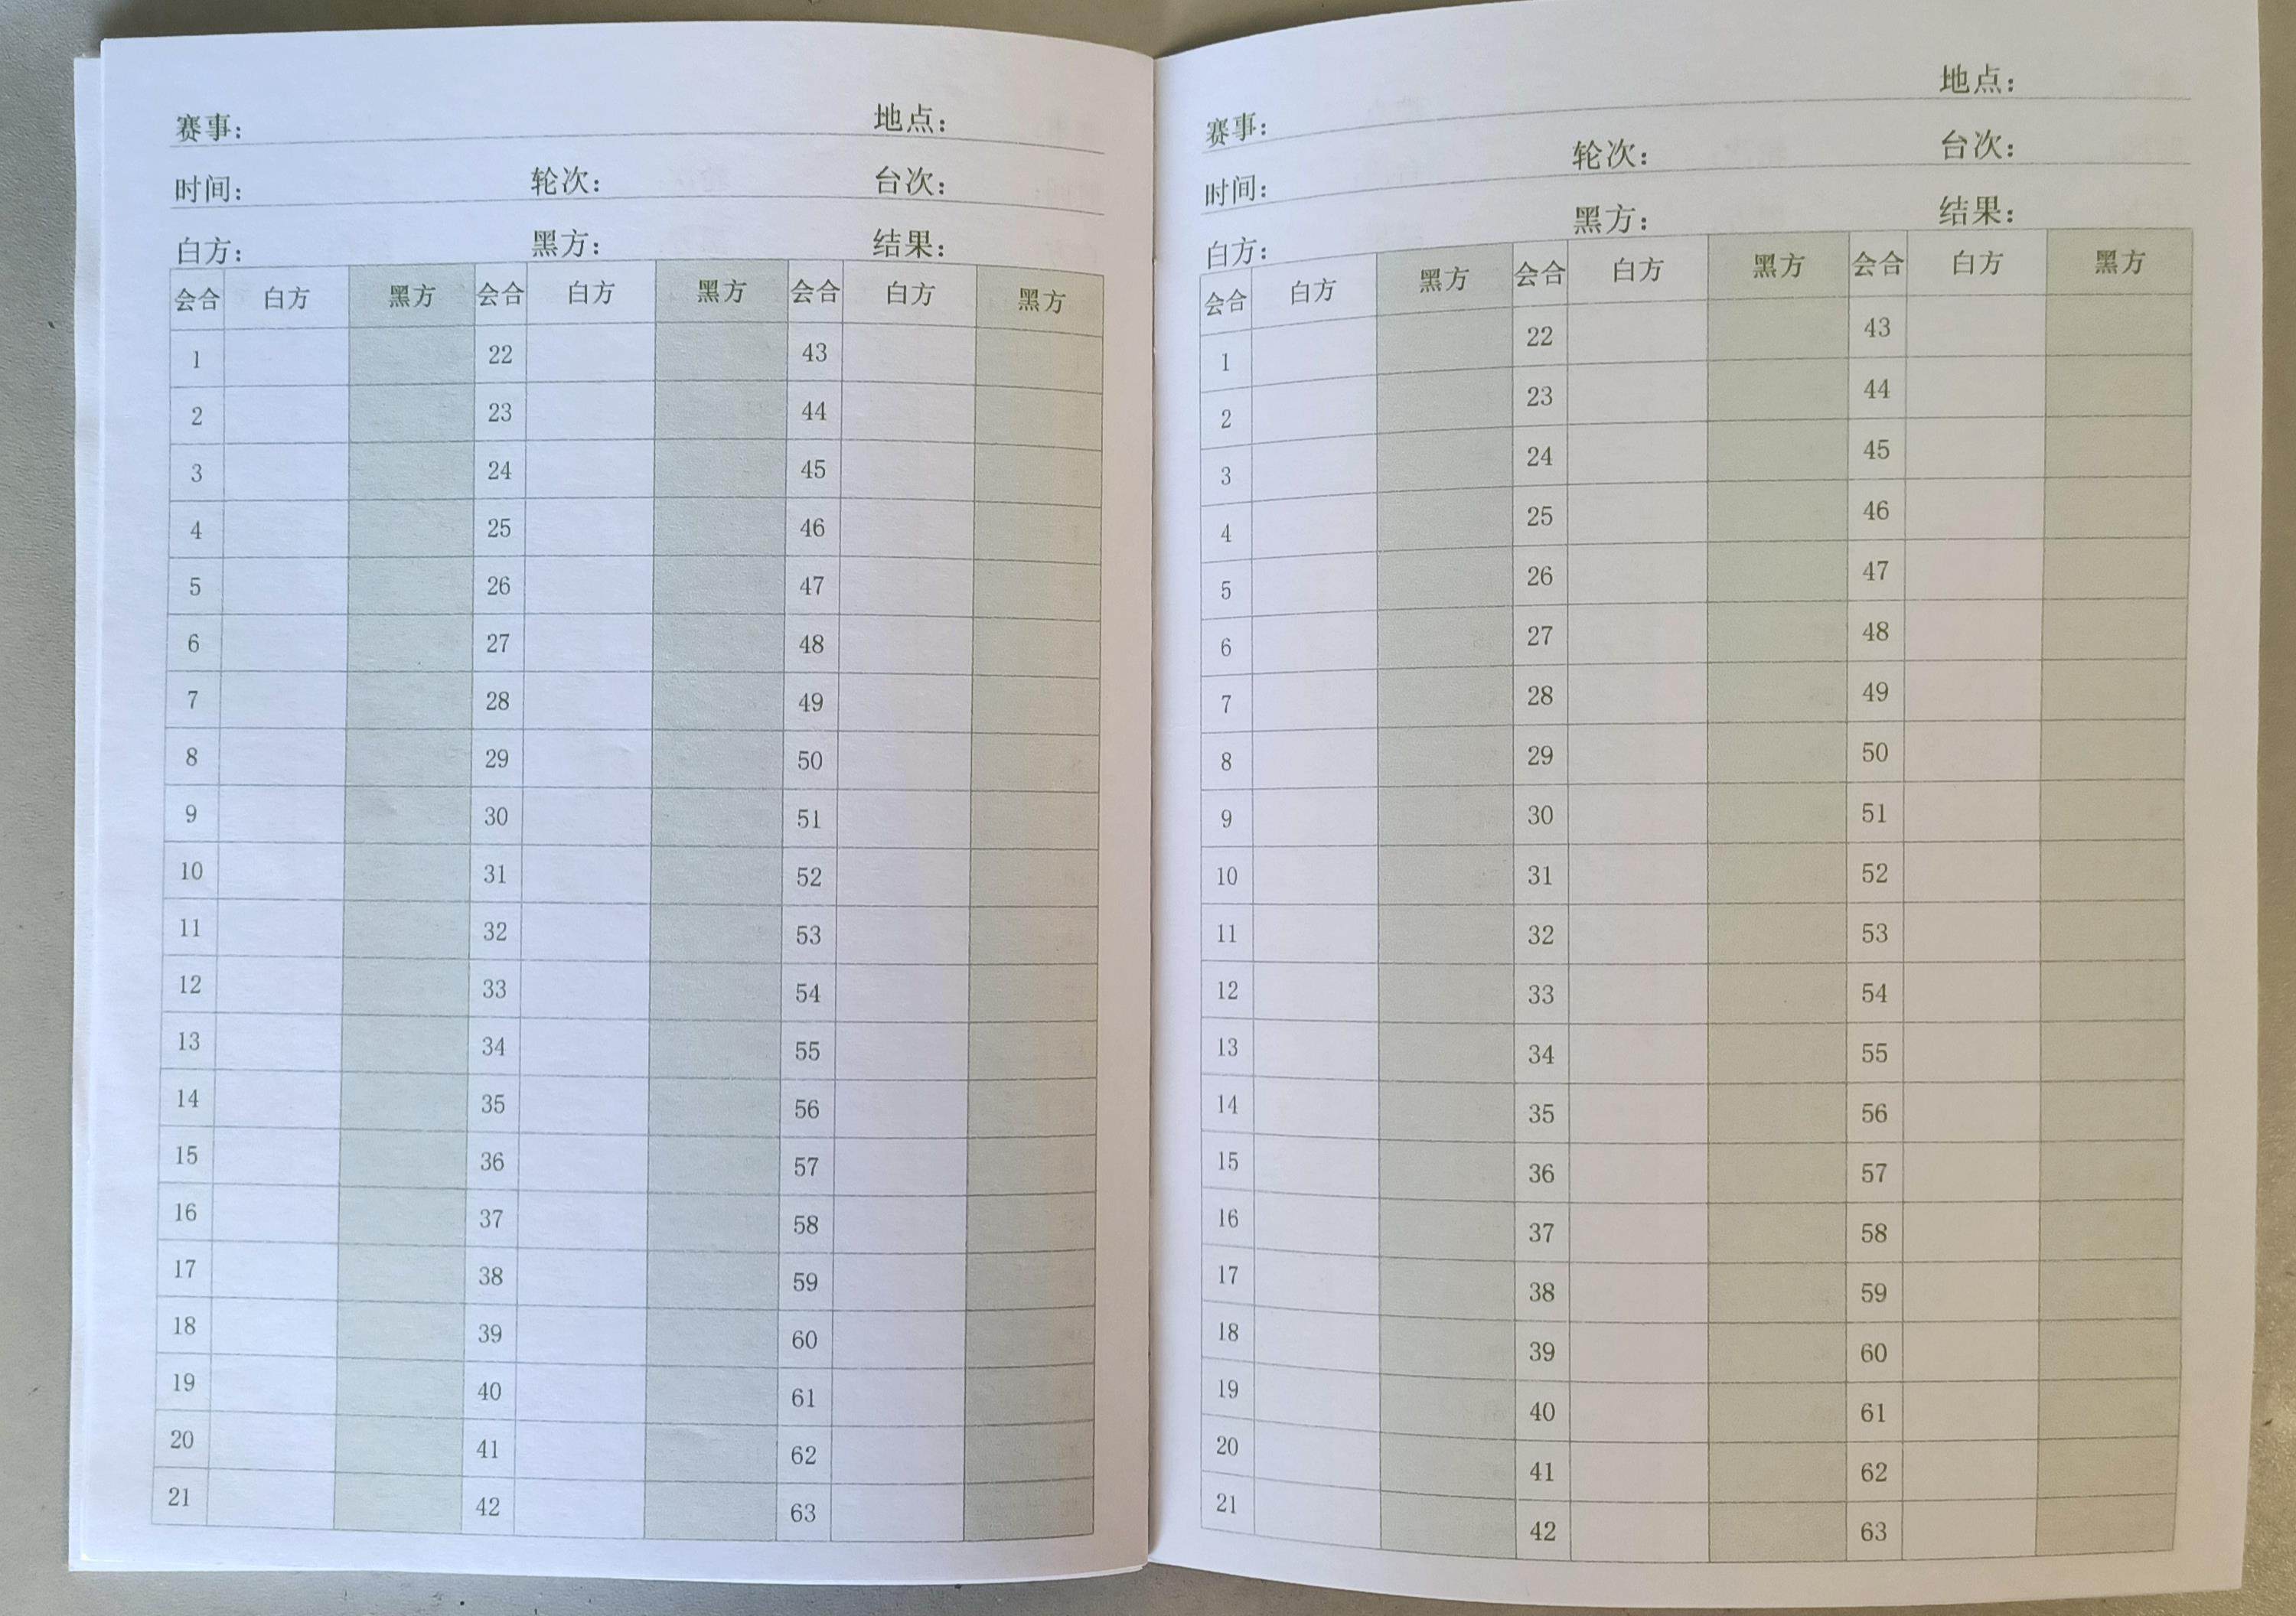 赛事： 地点：
时间： 轮次： 台次：
白方： 黑方： 结果：
会合 白方 黑方 会合 白方 黑方 会合 白方 黑方
1 22 43
2 23 44
3 24 45
4 25 46
5 26 47
6 27 48
7 28 49
8 29 50
9 30 51
10 31 52
11 32 53
12 33 54
13 34 55
14 35 56
15 36 57
16 37 58
17 38 59
18 39 60
19 40 61
20 41 62
21 42 63
赛事： 地点：
时间： 轮次： 台次：
白方： 黑方： 结果：
会合 白方 黑方 会合 白方 黑方 会合 白方 黑方
1 22 43
2 23 44
3 24 45
4 25 46
5 26 47
6 27 48
7 28 49
8 29 50
9 30 51
10 31 52
11 32 53
12 33 54
13 34 55
14 35 56
15 36 57
16 37 58
17 38 59
18 39 60
19 40 61
20 41 62
21 42 63